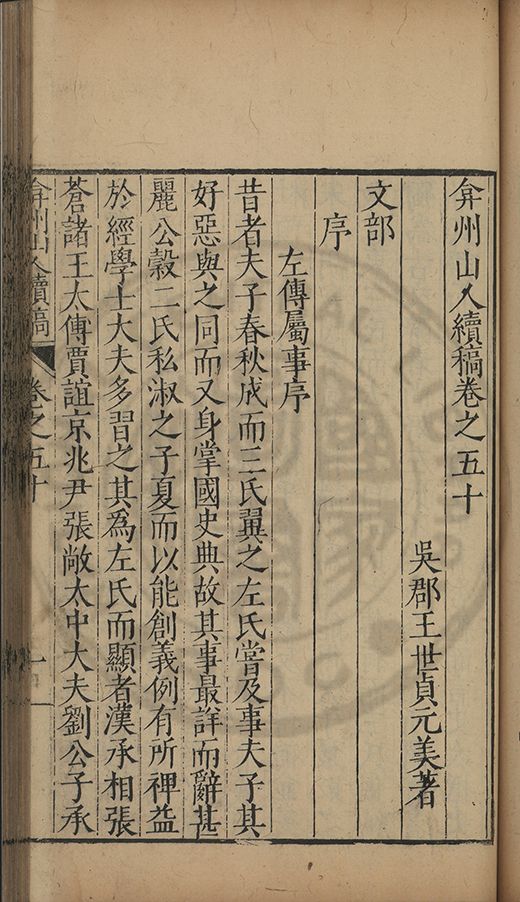 弇州山人續稿卷之五十
吳郡王世貞元美著
文部
序
左傳屬事序
昔者夫子春秋成而三氏翼之左氏嘗及事夫子其
好惡與之同而又身掌國史典故其事最詳而辭甚
麗公糓二氏私淑之子夏而以能創義例有所裨益
於經學士大夫多習之其為左氏而顯者漢丞相張
蒼諸王太傅賈誼京兆尹張敞太中大夫劉公子承
弇州山人續稿 卷之五十 一